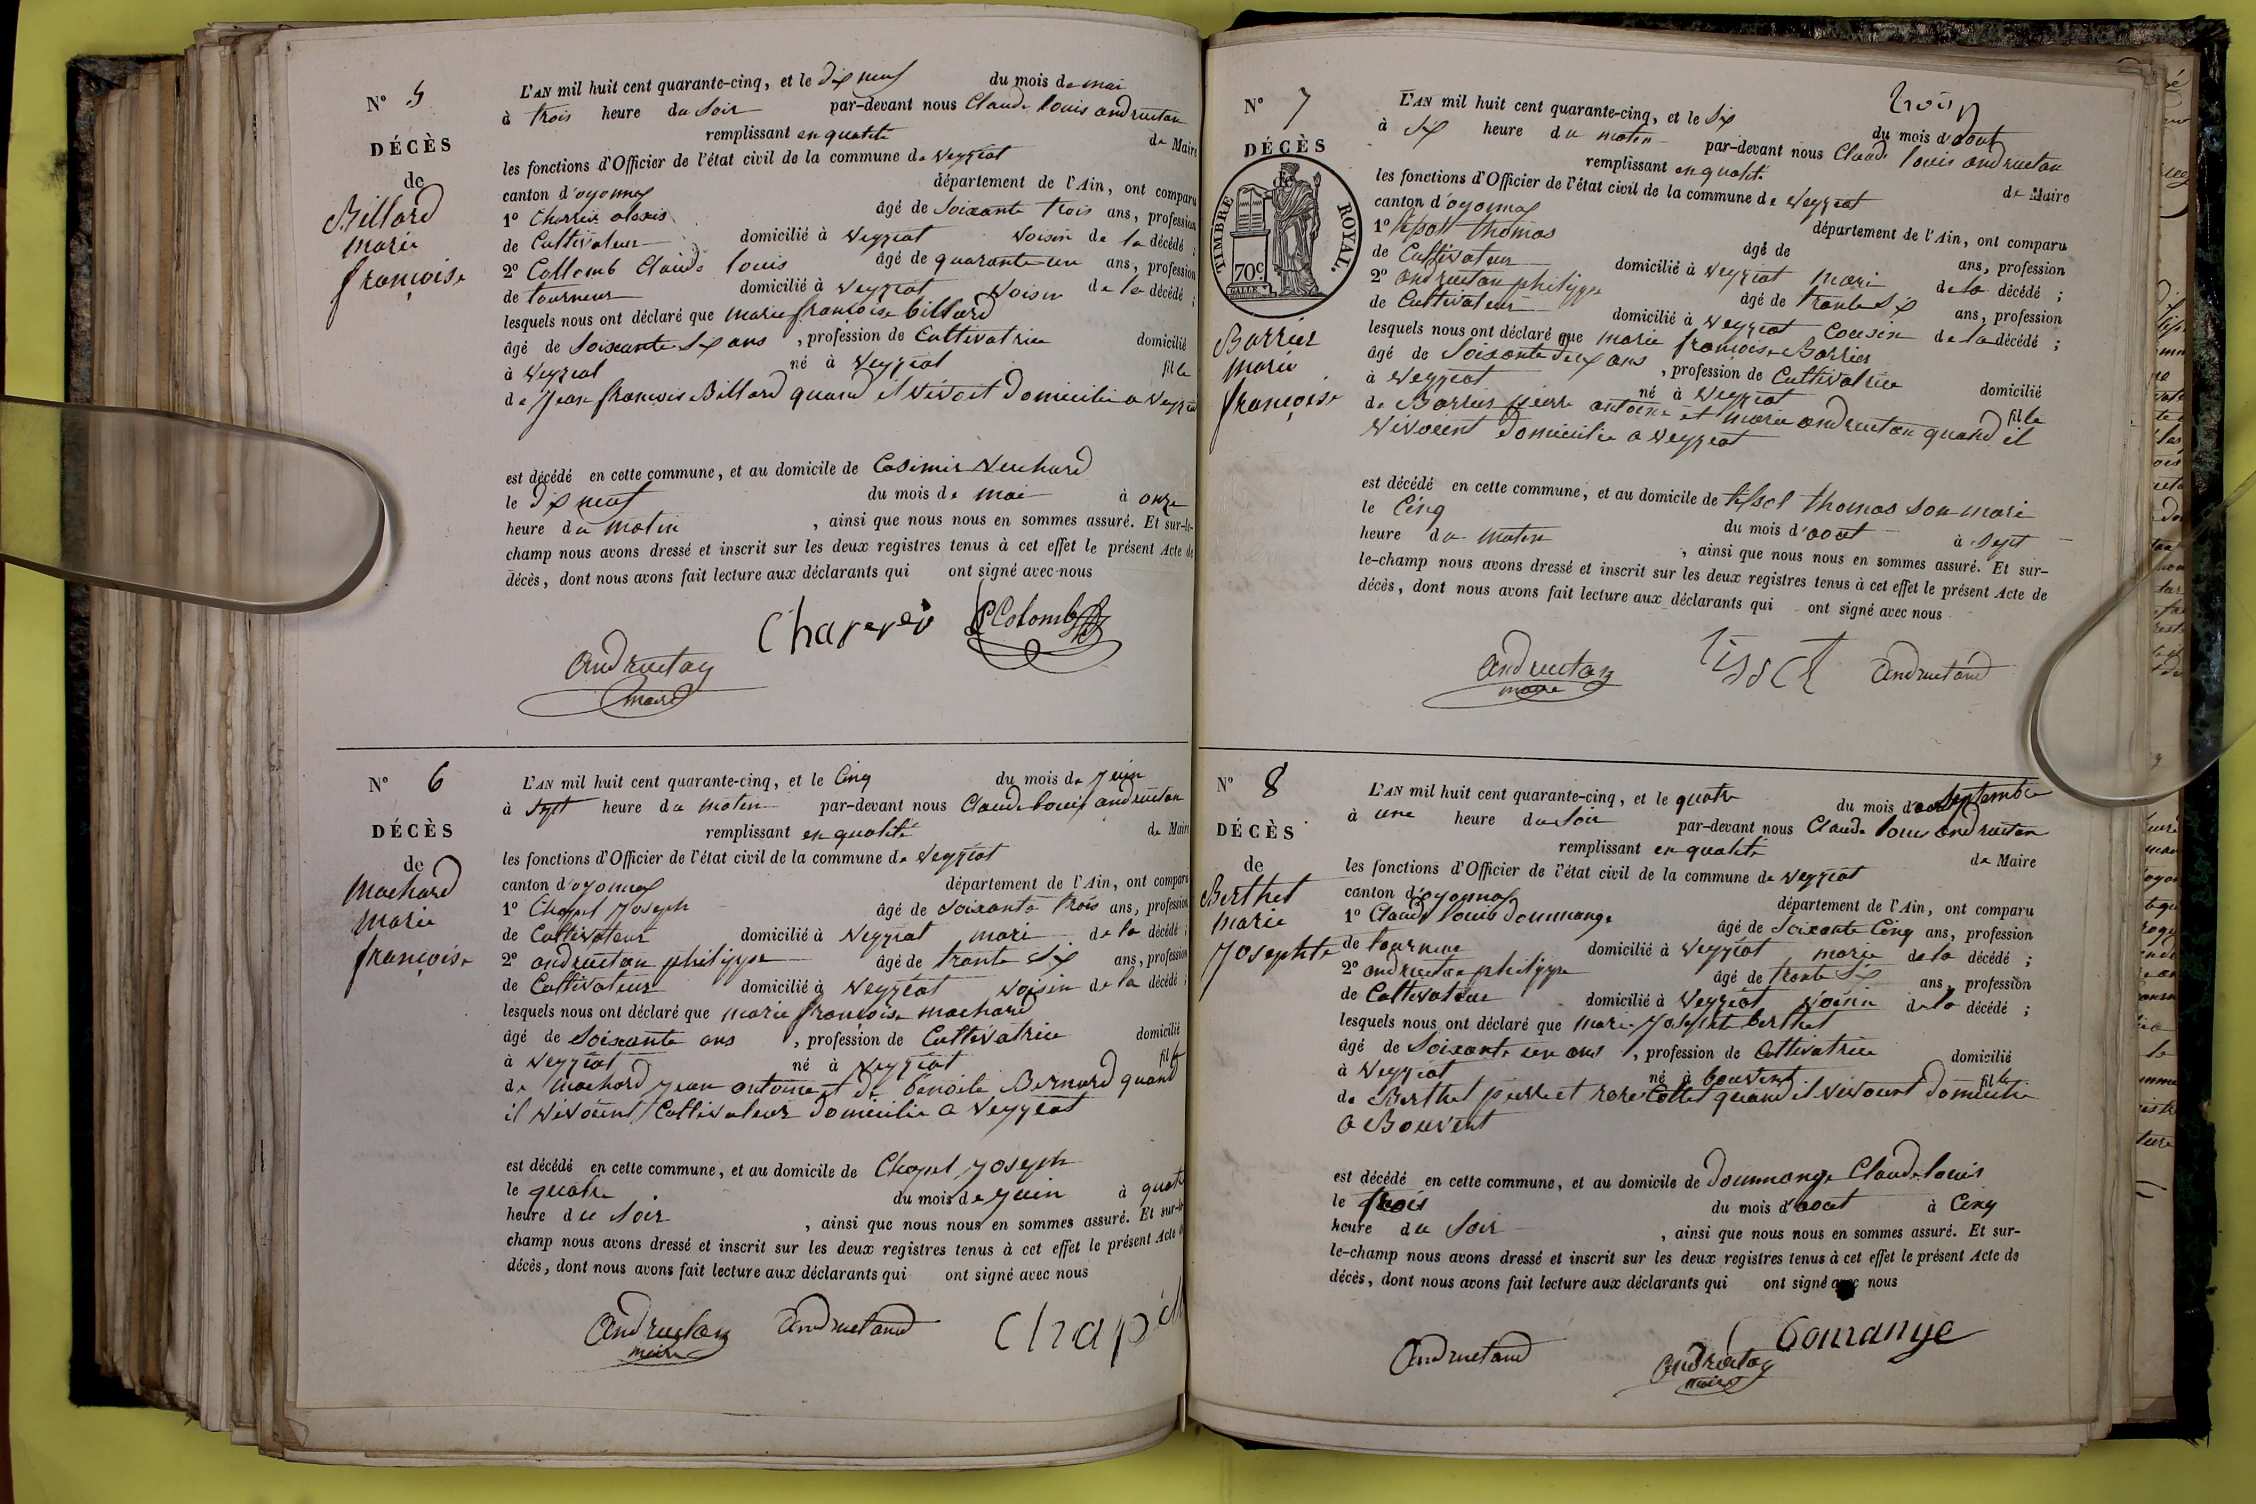 N° 5
DÉCÈS
de
Billard
marie
françoise
L'AN mil huit cent quarante-cinq, et le dix neuf du mois de mai
à trois heure du soir par-devant nous Claude louis andruetan
remplissant en qualité de Maire
les fonctions d'Officier de l'état civil de la commune de veyziat
canton d'oyonnax département de l'Ain, ont comparu
1° Charrier alexis âgé de soixante trois ans, profession
de Cultivateur domicilié à veyziat voisin de la décédé ;
2° Collomb Claude louis âgé de quarante un ans, profession
de tourneur domicilié à veyziat voisin de la décédé ;
lesquels nous ont déclaré que marie françoise billard
âgé de soixante six ans , profession de Cultivatrice domicilié
à veyziat né à veyziat fille
de jean françois Billard quand il vivoit domicilié a veyziat
est décédé en cette commune, et au domicile de Casimir Neuhard
le dix neuf du mois de mai à onze
heure du matin , ainsi que nous nous en sommes assuré. Et sur-le-
champ nous avons dressé et inscrit sur les deux registres tenus à cet effet le présent Acte de
décès, dont nous avons fait lecture aux déclarants qui ont signé avec nous
Colomb
andruetan
maire
N° 6
DÉCÈS
de
machard
marie
françoise
L'AN mil huit cent quarante-cinq, et le Cinq du mois de juin
à sept heure du matin par-devant nous Claude louis andruetan
remplissant en qualité de Maire
les fonctions d'Officier de l'état civil de la commune de veyziat
canton d'oyonnax département de l'Ain, ont comparu
1° Chapel joseph âgé de soixante trois ans, profession
de Cultivateur domicilié à veyziat mari de la décédé ;
2° andruetan philippe âgé de trante six ans, profession
de Cultivateur domicilié à veyziat voisin de la décédé ;
lesquels nous ont déclaré que marie françoise machard
âgé de soixante ans , profession de Cultivatrice domicilié
à veyziat né à veyziat fille
de machard jean antoine et de benoite Bernard quand
il vivoient Cultivateur domicilié a veyziat
est décédé en cette commune, et au domicile de Chapel joseph
le quatre du mois de juin à quatre
heure du soir , ainsi que nous nous en sommes assuré. Et sur-le-
champ nous avons dressé et inscrit sur les deux registres tenus à cet effet le présent Acte de
décès, dont nous avons fait lecture aux déclarants qui ont signé avec nous
andruetan andruetand Chapel
maire
N° 7
DÉCÈS
TIMBRE ROYAL.
70c
Barrier
marie
françoise
trois
L'AN mil huit cent quarante-cinq, et le six du mois d'aout
à six heure du matin par-devant nous Claude louis andruetan
remplissant en qualité de Maire
les fonctions d'Officier de l'état civil de la commune de veyziat
canton d'oyonnax département de l'Ain, ont comparu
1° tissot thomas âgé de ans, profession
de Cultivateur domicilié à veyziat mari de la décédé ;
2° andruetan philippe âgé de trante six ans, profession
de Cultivateur domicilié à veyziat Cousin de la décédé ;
lesquels nous ont déclaré que marie françoise Barrier
âgé de soixante deux ans , profession de Cultivatrice domicilié
à veyziat né à veyziat fille
de Barrier pierre antoine et marie andruetan quand il
vivoient domicilié a veyziat
est décédé en cette commune, et au domicile de tissot thomas son mari
le Cinq du mois d'aout à sept
heure du matin , ainsi que nous nous en sommes assuré. Et sur-
le-champ nous avons dressé et inscrit sur les deux registres tenus à cet effet le présent Acte de
décès, dont nous avons fait lecture aux déclarants qui ont signé avec nous
andruetan tissot andruetand
maire
N° 8
DÉCÈS
de
Berthet
marie
josephte
L'AN mil huit cent quarante-cinq, et le quatre du mois d'septembre
à une heure du soir par-devant nous Claude louis andruetan
remplissant en qualité de Maire
les fonctions d'Officier de l'état civil de la commune de veyziat
canton d'oyonnax département de l'Ain, ont comparu
1° Claude louis doumange âgé de soixante Cinq ans, profession
de tourneur domicilié à veyziat marie de la décédé ;
2° andruetan philippe âgé de trante six ans, profession
de Cultivateur domicilié à veyziat voisin de la décédé ;
lesquels nous ont déclaré que marie josephte berthet
âgé de soixante un ans , profession de Cultivatrice domicilié
à veyziat né à bouvent fille
de Berthet pierre et rose Collet quand il vivoient domicilié
a Bouvent
est décédé en cette commune, et au domicile de doumange Claude louis
le trois du mois d'aout à Cinq
heure du soir , ainsi que nous nous en sommes assuré. Et sur-
le-champ nous avons dressé et inscrit sur les deux registres tenus à cet effet le présent Acte de
décès, dont nous avons fait lecture aux déclarants qui ont signé avec nous
andruetand andruetan
maire